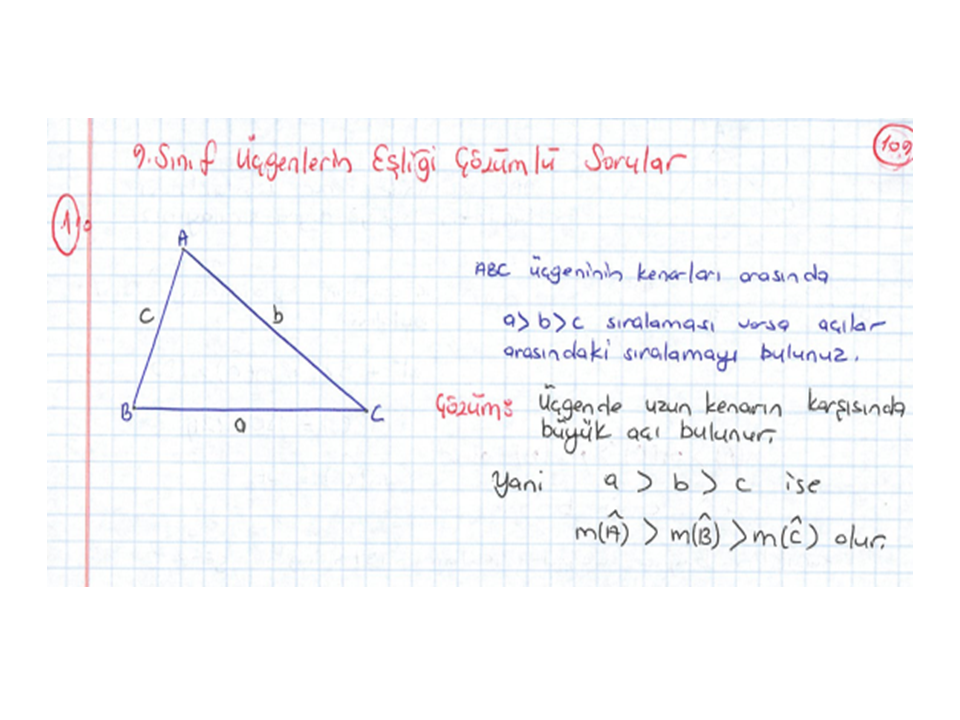 9. Sınıf Üçgenlerin Eşliği Çözümlü Sorular
109
1)
A
ABC üçgeninin kenarları arasında
c
b
a>b>c sıralaması varsa açılar
arasındaki sıralamayı bulunuz.
B
C
a
Çözüm: Üçgende uzun kenarın karşısında
büyük açı bulunur.
Yani a > b > c ise
m(Â) > m(B̂) > m(Ĉ) olur.